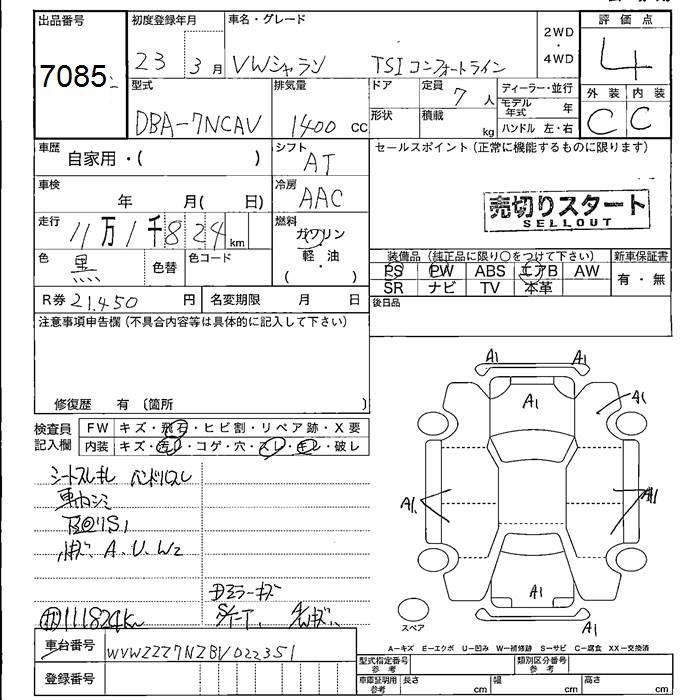 出品番号
7085
初度登録年月
23 3月
車名・グレード
VWシャラン TSIコンフォートライン
2WD
・
4WD
評価点
4
外装 内装
C C
型式
DBA-7NCAV
排気量
1400 cc
ドア
定員
7人
形状
積載
kg
ディーラー・並行
モデル年式 年
ハンドル 左・右
車歴
自家用・( )
シフト
AT
セールスポイント (正常に機能するものに限ります)
売切りスタート
SELLOUT
車検
年 月( 日)
冷房
AAC
走行
11万1千824km
燃料
ガソリン
・
軽・油
( )
色
黒
色替
色コード
装備品 (純正品に限り○をつけて下さい)
PS PW ABS エアB AW
SR ナビ TV 本革
新車保証書
有・無
R券 21,450 円
名変期限 月 日
後日品
注意事項申告欄 (不具合内容等は具体的に記入して下さい)
修復歴 有 〔箇所 〕
検査員
記入欄
FW キズ・飛石・ヒビ割・リペア跡・X要
内装 キズ・汚レ・コゲ・穴・スレ・モレ・破レ
A1 A1
A1
A1
A1
A1
A1
スペア
A1
A-キズ E-エクボ U-凹み W-補修跡 S-サビ C-腐食 XX-交換済
A.U.W2
111824km
車台番号
WVWZZZ7NZBV022351
登録番号
型式指定番号
参考
類別区分番号
参考
車庫証明用
参考
長さ cm
幅 cm
高さ cm